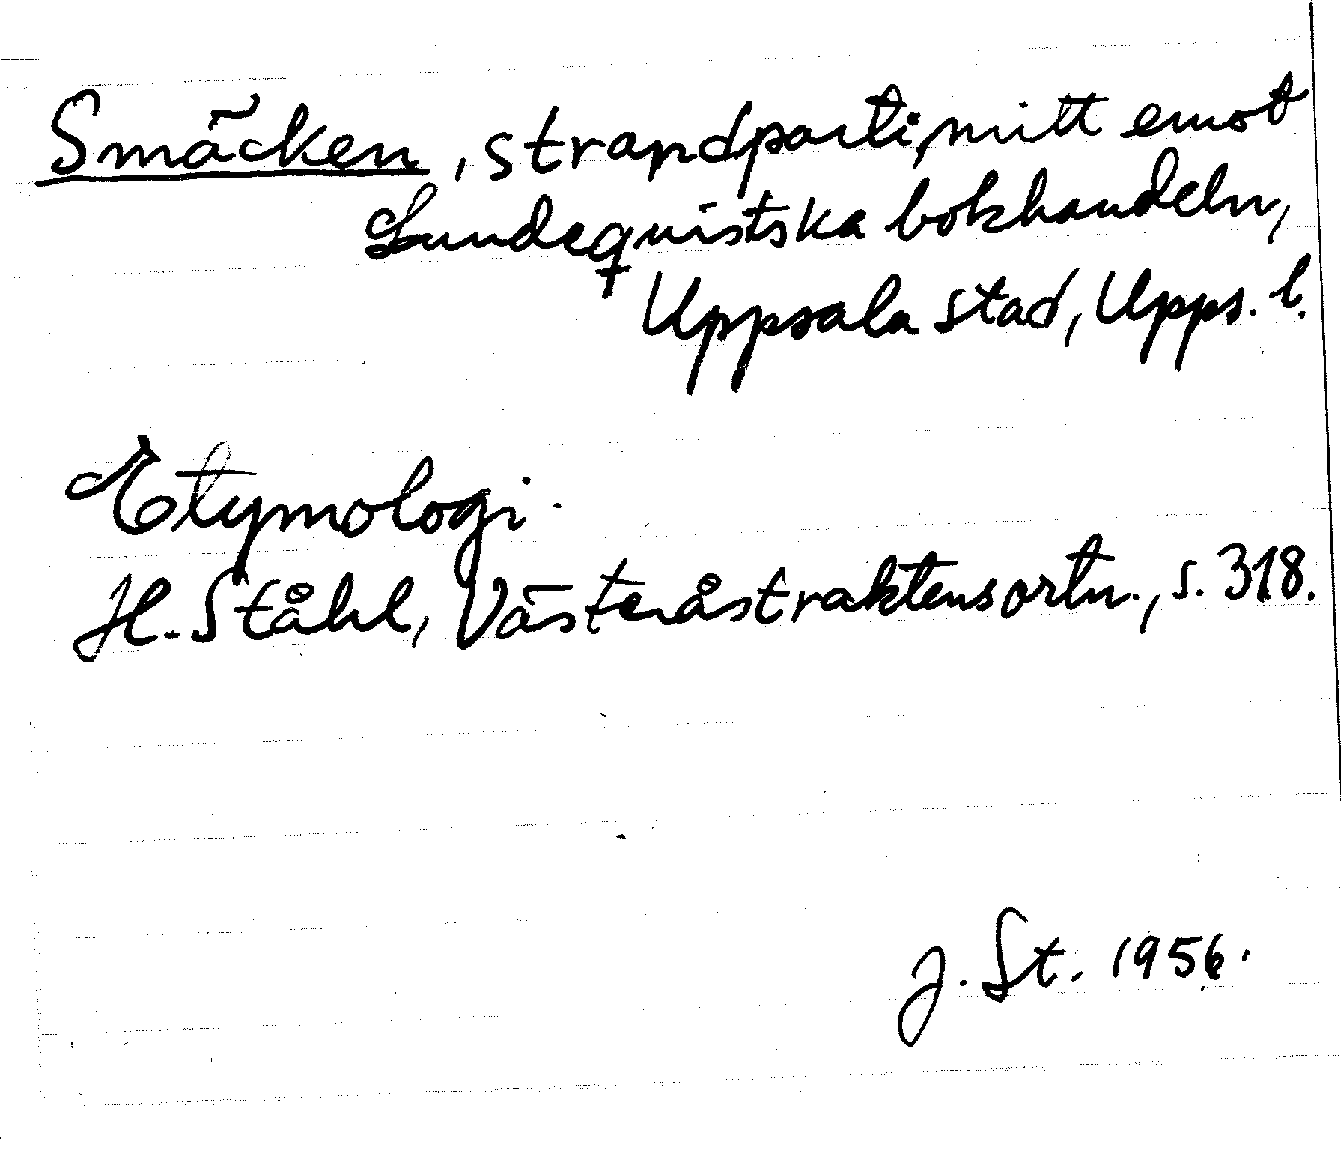 Smäcken, strandparti, mitt emot
Lundequistska bokhandeln,
Uppsala stad, Upps. l.
Etymologi.
H. Ståhl, Västeråstraktens ortn., s. 318.
J. St. 1956.